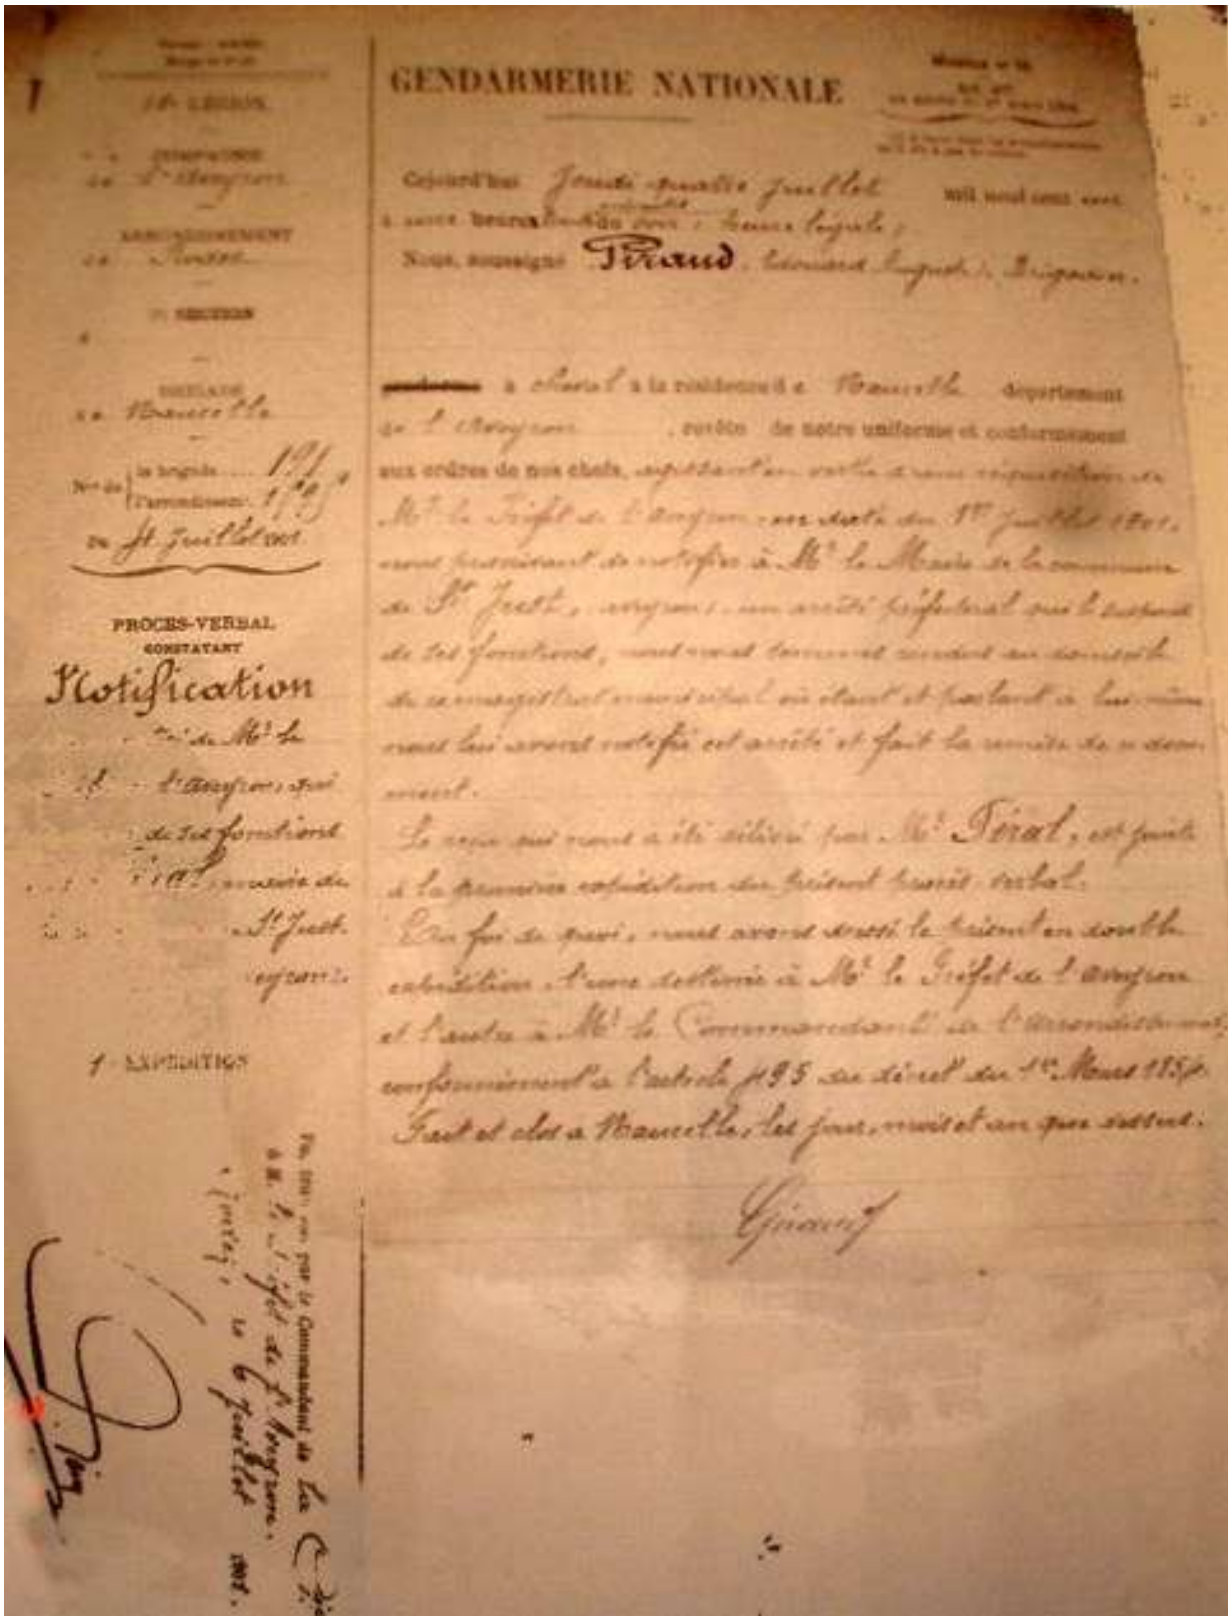 LÉGION
COMPAGNIE
de l'Aveyron
ARRONDISSEMENT
de Rodez
SECTION
BRIGADE
de Naucelle
Nos de la brigade 191
l'arrondissemt
Du 4 Juillet 1901
PROCÈS-VERBAL
CONSTATANT
Notification
de Mr le
l'Aveyron, qui
de ses fonctions
maire de
St Just.
1e EXPÉDITION
GENDARMERIE NATIONALE
Cejourd'hui Jeudi quatre Juillet mil neuf cent
heures du soir, heure légale,
Nous, soussigné Edouard Auguste, Brigadier.
à cheval à la résidence de Naucelle département
de l'Aveyron, revêtu de notre uniforme et conformément
aux ordres de nos chefs, agissant en vertu d'une réquisition de
Mr le Préfet de l'Aveyron en date du 1er Juillet 1901,
nous prescrivant de notifier à Mr le Maire de la commune
de St Just, Aveyron, un arrêté préfectoral qui le suspend
de ses fonctions, nous nous sommes rendus au domicile
de ce magistrat municipal où étant et parlant à lui-même
nous lui avons notifié cet arrêté et fait la remise de ce docu-
ment.
Le reçu qui nous a été délivré par Mr Féral, est joint
à la première expédition du présent procès-verbal.
En foi de quoi, nous avons dressé le présent en double
expédition, l'une destinée à Mr le Préfet de l'Aveyron
et l'autre à Mr le Commandant de l'arrondissement,
conformément à l'article 495 du décret du 1er Mars 1854.
Fait et clos à Naucelle, les jour, mois et an que dessus.
par le Commandant de la Cie
à M. le Préfet de l'Aveyron.
Rodez, le 6 Juillet 1901.